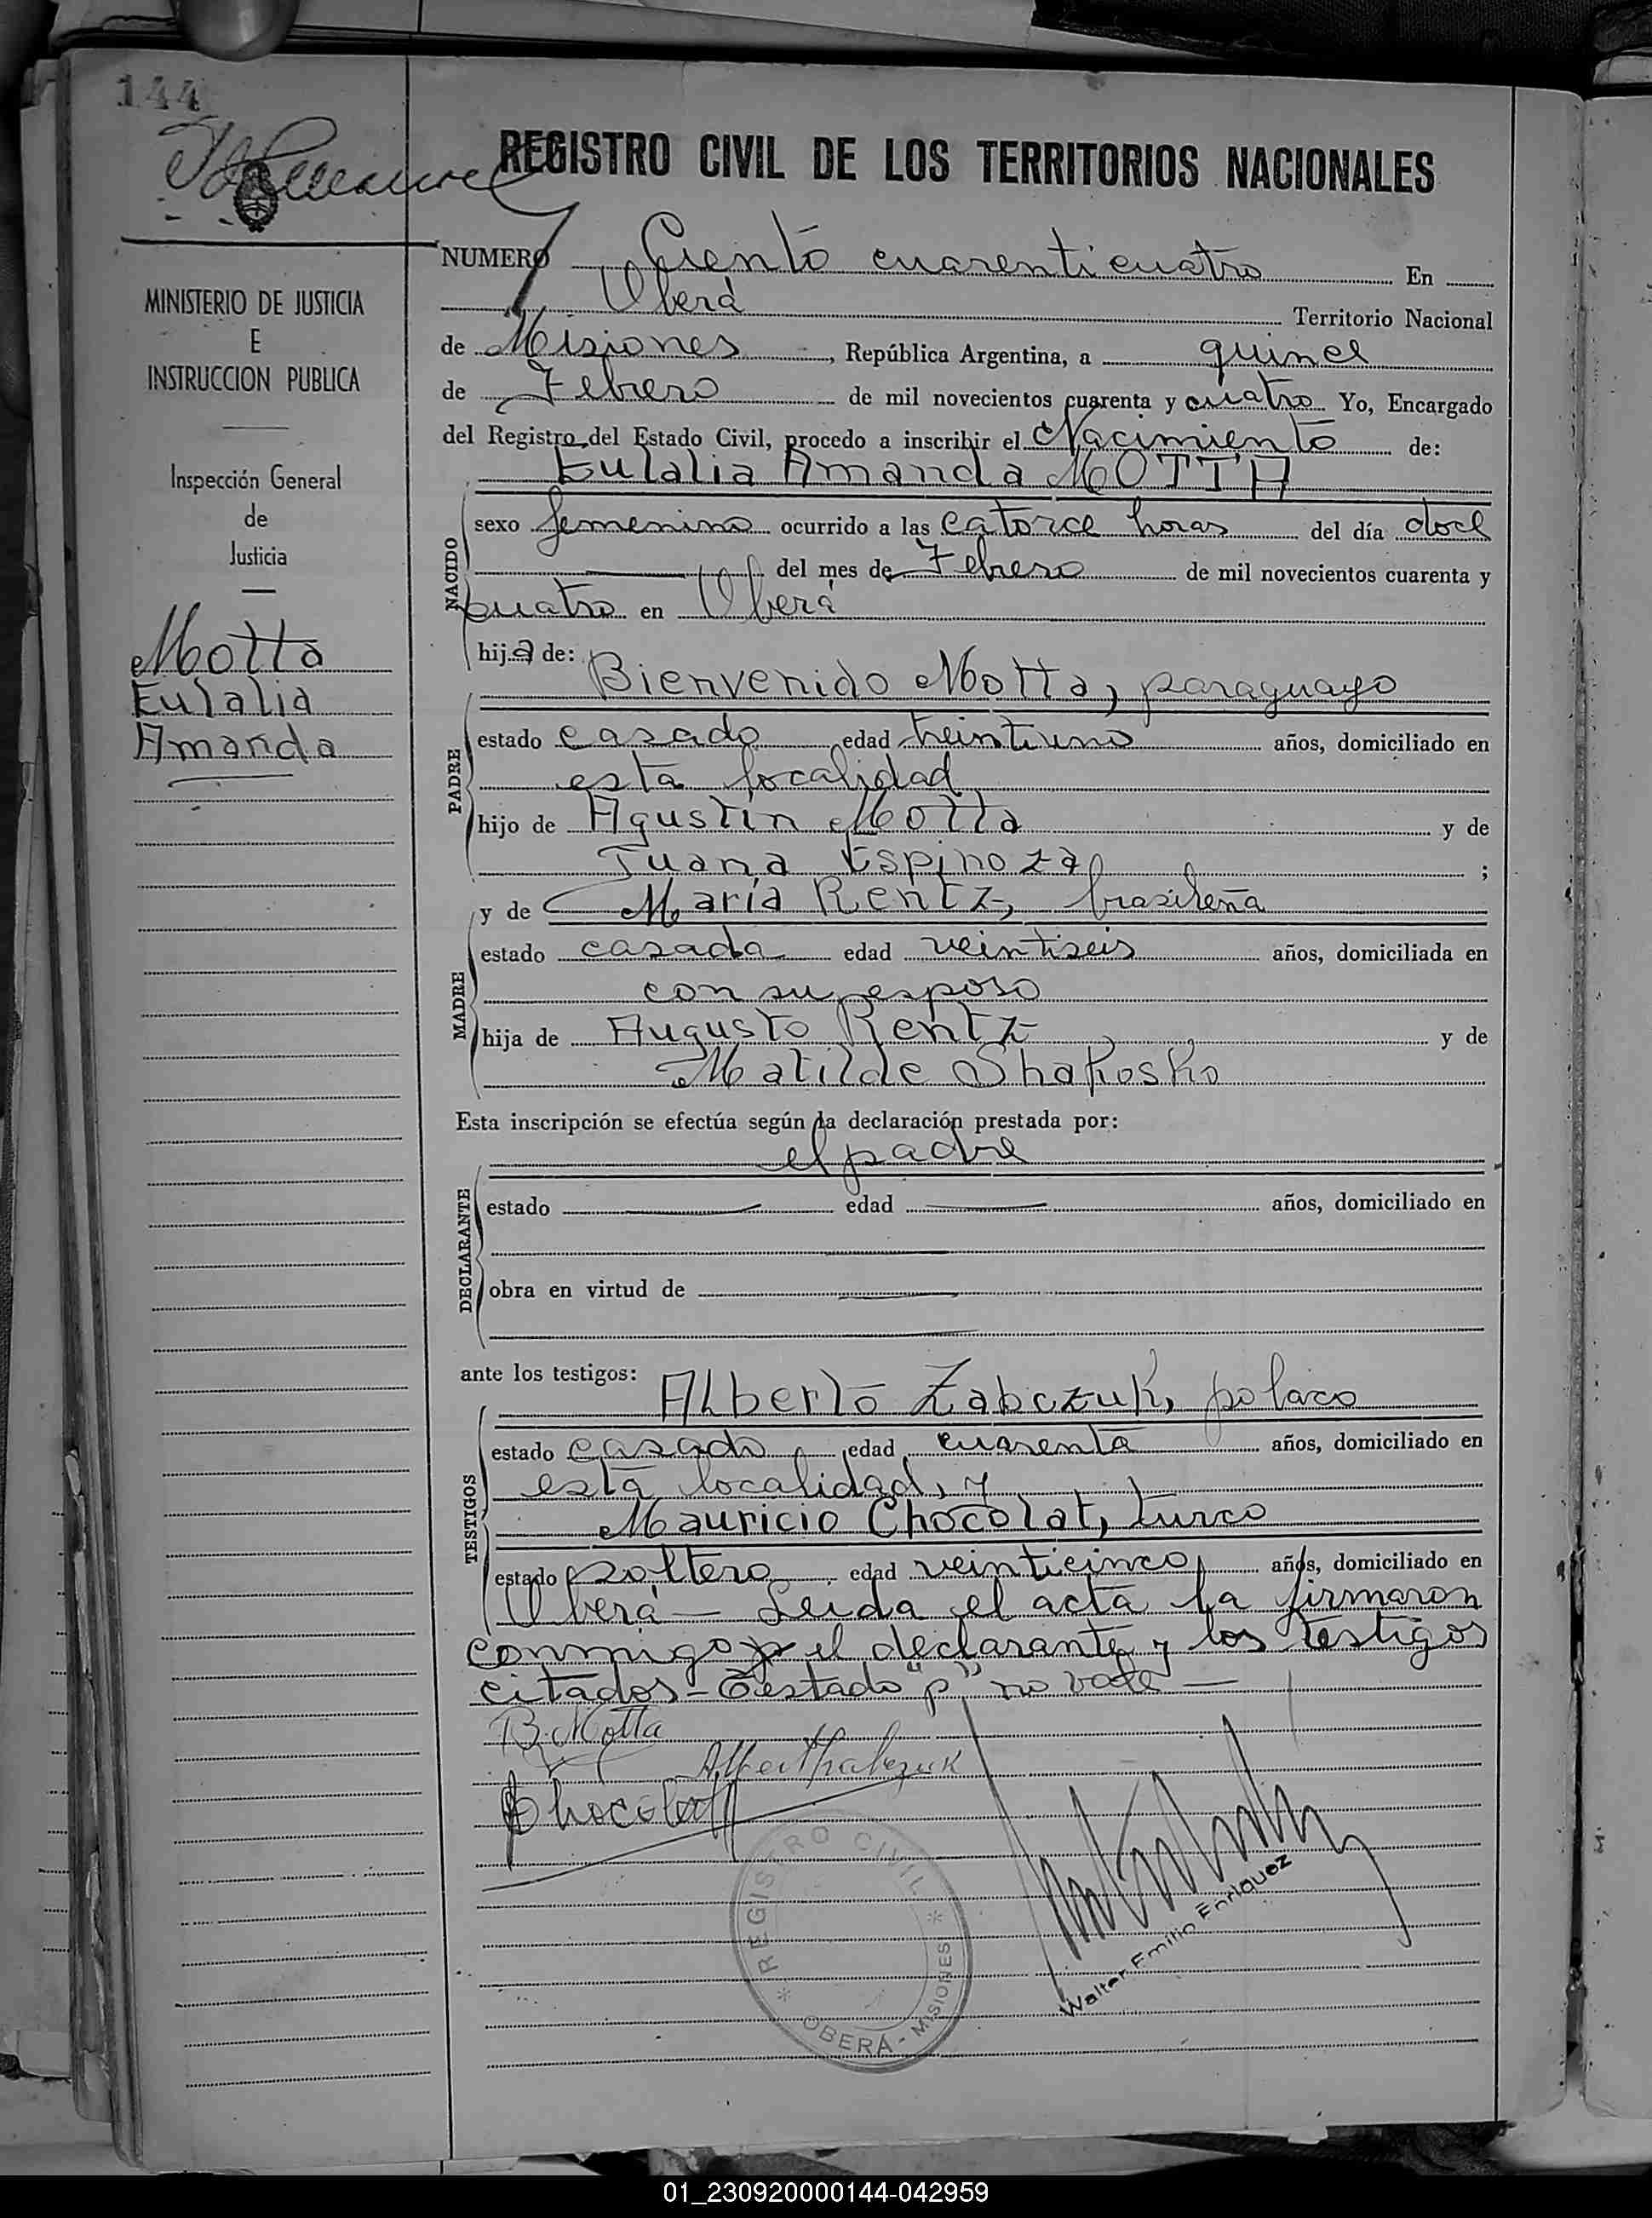 144
REGISTRO CIVIL DE LOS TERRITORIOS NACIONALES
MINISTERIO DE JUSTICIA
E
INSTRUCCION PUBLICA
Inspección General
de
Justicia
Motta
Eulalia
Amanda
NUMERO Ciento cuarenticuatro En
Oberá Territorio Nacional
de Misiones, República Argentina, a quince
de Febrero de mil novecientos cuarenta y cuatro Yo, Encargado
del Registro del Estado Civil, procedo a inscribir el Nacimiento de:
Eulalia Amanda MOTTA
NACIDO
sexo femenino ocurrido a las catorce horas del día doce
del mes de Febrero de mil novecientos cuarenta y
cuatro en Oberá
hija de:
Bienvenido Motta, paraguayo
PADRE
estado casado edad treintiuno años, domiciliado en
esta localidad
hijo de Agustín Motta y de
Juana Espinoza ;
y de María Rentz, brasileña
MADRE
estado casada edad veintiseis años, domiciliada en
con su esposo
hija de Augusto Rentz y de
Matilde Shakosko
Esta inscripción se efectúa según la declaración prestada por:
el padre
DECLARANTE
estado edad años, domiciliado en
obra en virtud de
ante los testigos:
Alberto Zabczuk, polaco
TESTIGOS
estado casado edad cuarenta años, domiciliado en
esta localidad, y
Mauricio Chocolat, turco
estado soltero edad veinticinco años, domiciliado en
Oberá — Leida el acta la firmaron
conmigo p el declarante y los testigos
citados - Testado "p" no vale —
B. Motta
Chocolat
REGISTRO CIVIL
OBERÁ - MISIONES
Walter Emilio Enriquez
01_230920000144-042959